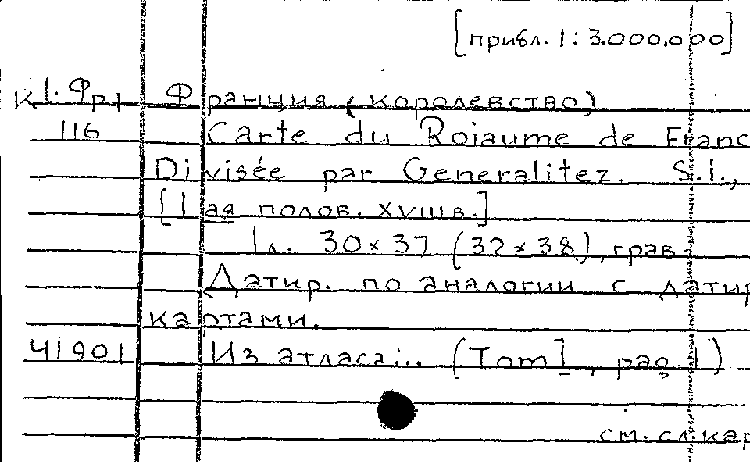 [прибл. 1: 3.000.000]
К1. Фр1 Франция (королевство)
116 Carte du Roiaume de Franc
Divisée par Generalitez. S.l.,
[1ая полов. XVIIIв.]
1л. 30×37 (32×38), грав.
Датир. по аналогии с датир
картами.
41901 Из атласа:.. (Tom 1, pag 1)
см. сл. кар